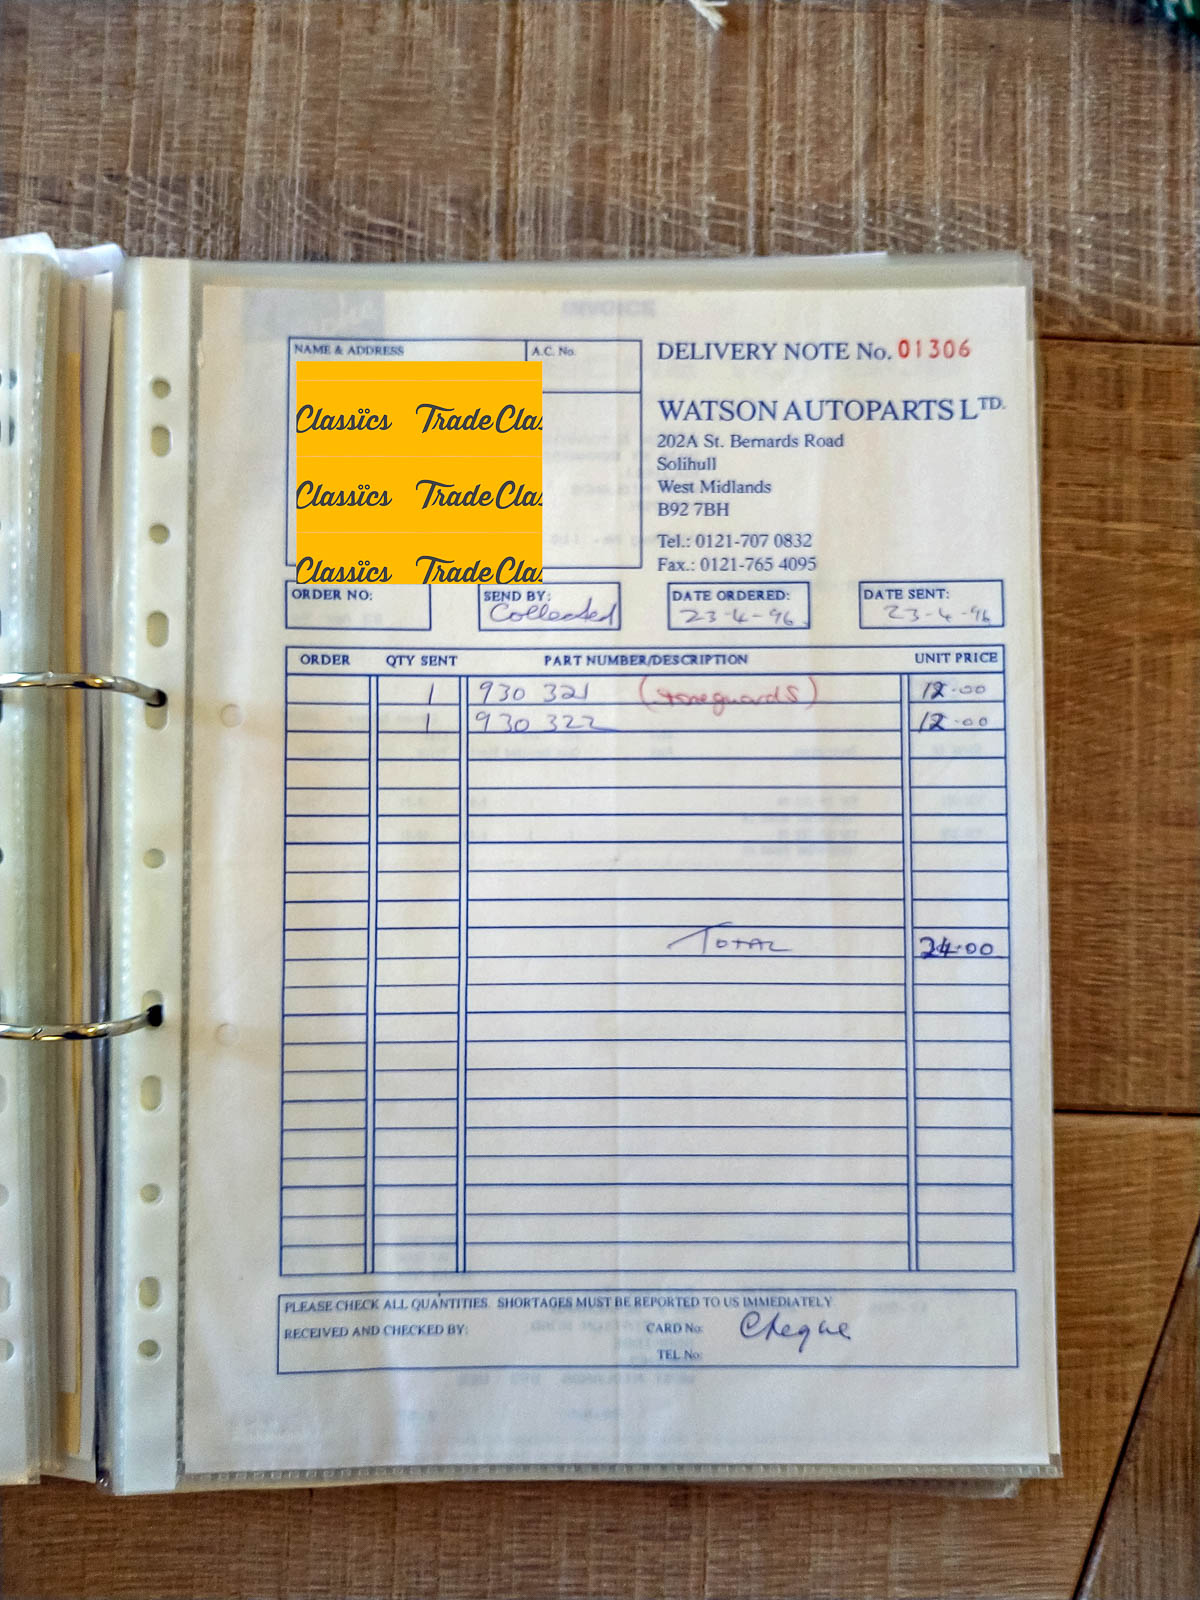 INVOICE
NAME & ADDRESS
A.C. No.
DELIVERY NOTE No. 01306
Classics Trade Clas
Classics Trade Clas
Classics Trade Clas
WATSON AUTOPARTS LTD.
202A St. Bernards Road
Solihull
West Midlands
B92 7BH
Tel.: 0121-707 0832
Fax.: 0121-765 4095
ORDER NO:
SEND BY: Collected
DATE ORDERED: 23-4-96
DATE SENT: 23-4-96
ORDER QTY SENT PART NUMBER/DESCRIPTION UNIT PRICE
1 930 321 (stoneguards) 12.00
1 930 322 12.00
TOTAL 24.00
PLEASE CHECK ALL QUANTITIES. SHORTAGES MUST BE REPORTED TO US IMMEDIATELY
RECEIVED AND CHECKED BY: CARD No: Cheque
TEL No: